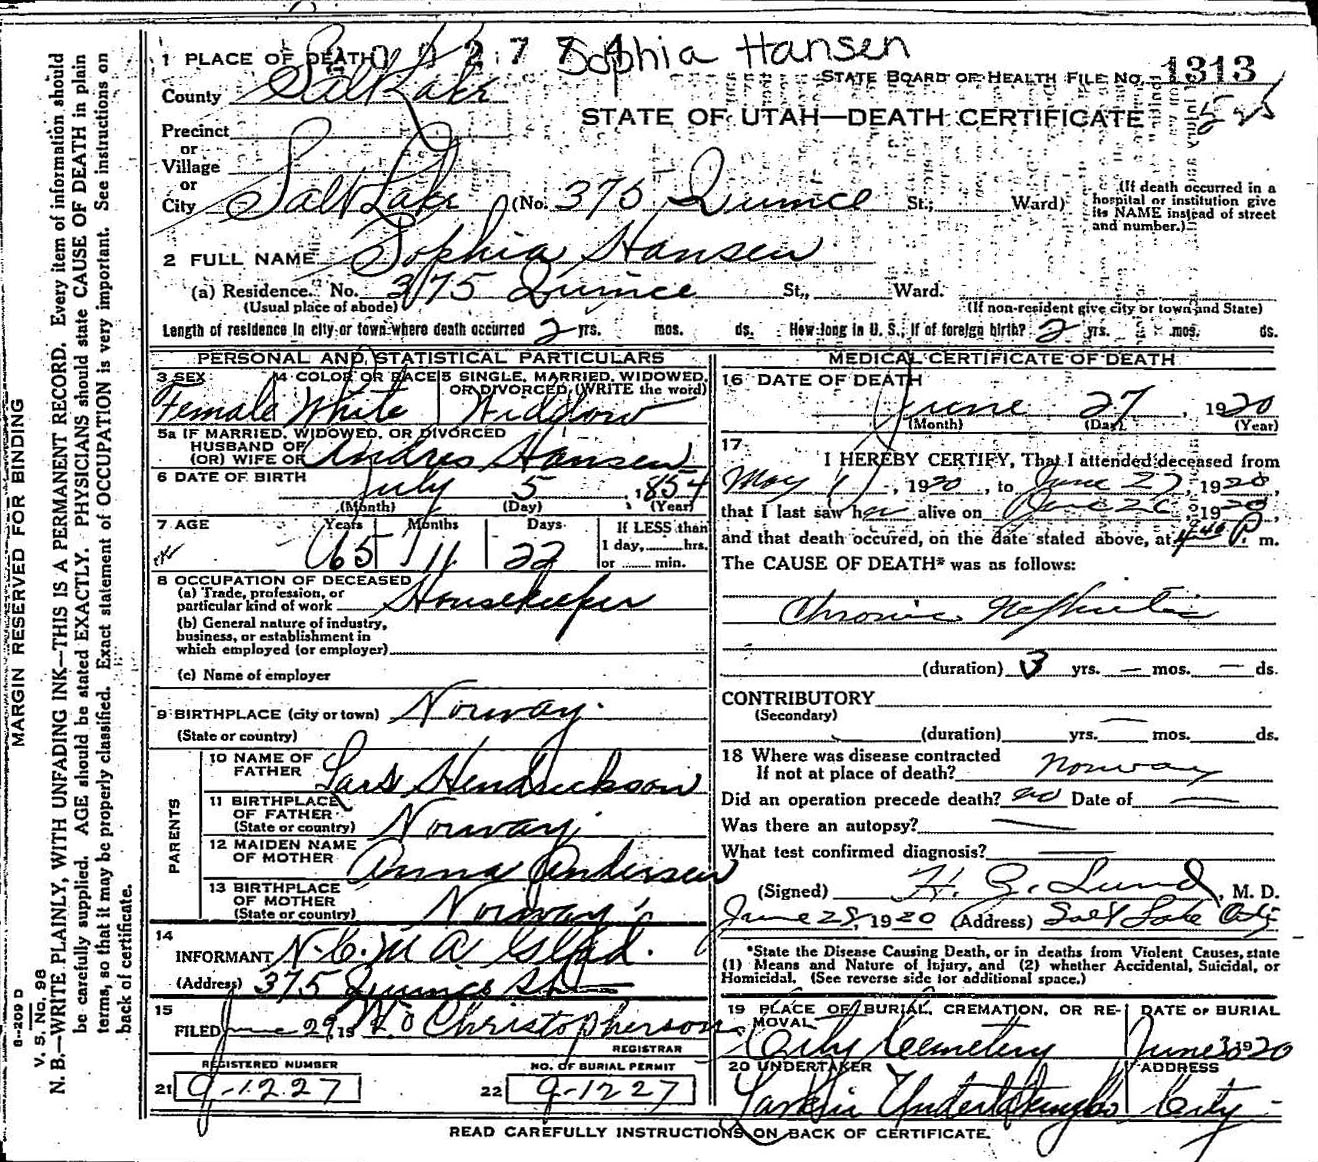 Sophia Hansen
1 PLACE OF DEATH
STATE BOARD OF HEALTH FILE NO. 1313
County Salt Lake
STATE OF UTAH—DEATH CERTIFICATE
525
Precinct
or
Village
or
City Salt Lake (No. 375 Quince St.; Ward)
(If death occurred in a hospital or institution give its NAME instead of street and number.)
2 FULL NAME Sophia Hansen
(a) Residence. No. 375 Quince St., Ward.
(Usual place of abode) (If non-resident give city or town and State)
Length of residence in city or town where death occurred 2 yrs. mos. ds. How long in U. S., if of foreign birth? 2 yrs. mos. ds.
PERSONAL AND STATISTICAL PARTICULARS
3 SEX Female
4 COLOR OR RACE White
5 SINGLE, MARRIED, WIDOWED, OR DIVORCED, (WRITE the word) Widdow
5a IF MARRIED, WIDOWED, OR DIVORCED
HUSBAND OF
(OR) WIFE OF Andres Hansen
6 DATE OF BIRTH July 5, 1854
(Month) (Day) (Year)
7 AGE Years Months Days
65 11 22
If LESS than
1 day, hrs.
or min.
8 OCCUPATION OF DECEASED
(a) Trade, profession, or
particular kind of work Housekeeper
(b) General nature of industry,
business, or establishment in
which employed (or employer)
(c) Name of employer
9 BIRTHPLACE (city or town) Norway.
(State or country)
PARENTS
10 NAME OF FATHER Lars Hendrickson
11 BIRTHPLACE OF FATHER
(State or country) Norway.
12 MAIDEN NAME OF MOTHER Anna Andersen
13 BIRTHPLACE OF MOTHER
(State or country) Norway.
14
INFORMANT N. C. M. A.
(Address) 375 Quince St
15
FILED June 29, 1920 Christopherson
REGISTRAR
REGISTERED NUMBER
21 G-1227
NO. OF BURIAL PERMIT
22 G-1227
MEDICAL CERTIFICATE OF DEATH
16 DATE OF DEATH
June 27, 1920
(Month) (Day) (Year)
17
I HEREBY CERTIFY, That I attended deceased from
May 1, 1920, to June 27, 1920,
that I last saw her alive on June 26, 1920,
and that death occured, on the date stated above, at P. m.
The CAUSE OF DEATH* was as follows:
Chronic Nephritis
(duration) 3 yrs. — mos. — ds.
CONTRIBUTORY
(Secondary)
(duration) yrs. mos. ds.
18 Where was disease contracted
If not at place of death? Norway
Did an operation precede death? no Date of —
Was there an autopsy? —
What test confirmed diagnosis? —
(Signed) H. Z. Lund, M. D.
June 28, 1920 (Address) Salt Lake City
*State the Disease Causing Death, or in deaths from Violent Causes, state
(1) Means and Nature of Injury, and (2) whether Accidental, Suicidal, or
Homicidal. (See reverse side for additional space.)
19 PLACE OF BURIAL, CREMATION, OR REMOVAL
City Cemetery
DATE OF BURIAL
June 30 1920
20 UNDERTAKER
Larkin Undertaking Co
ADDRESS
City
READ CAREFULLY INSTRUCTIONS ON BACK OF CERTIFICATE.
MARGIN RESERVED FOR BINDING
N. B.—WRITE PLAINLY, WITH UNFADING INK—THIS IS A PERMANENT RECORD. Every item of information should
be carefully supplied. AGE should be stated EXACTLY. PHYSICIANS should state CAUSE OF DEATH in plain
terms, so that it may be properly classified. Exact statement of OCCUPATION is very important. See instructions on
back of certificate.
V. S. No. 98
8-209 D